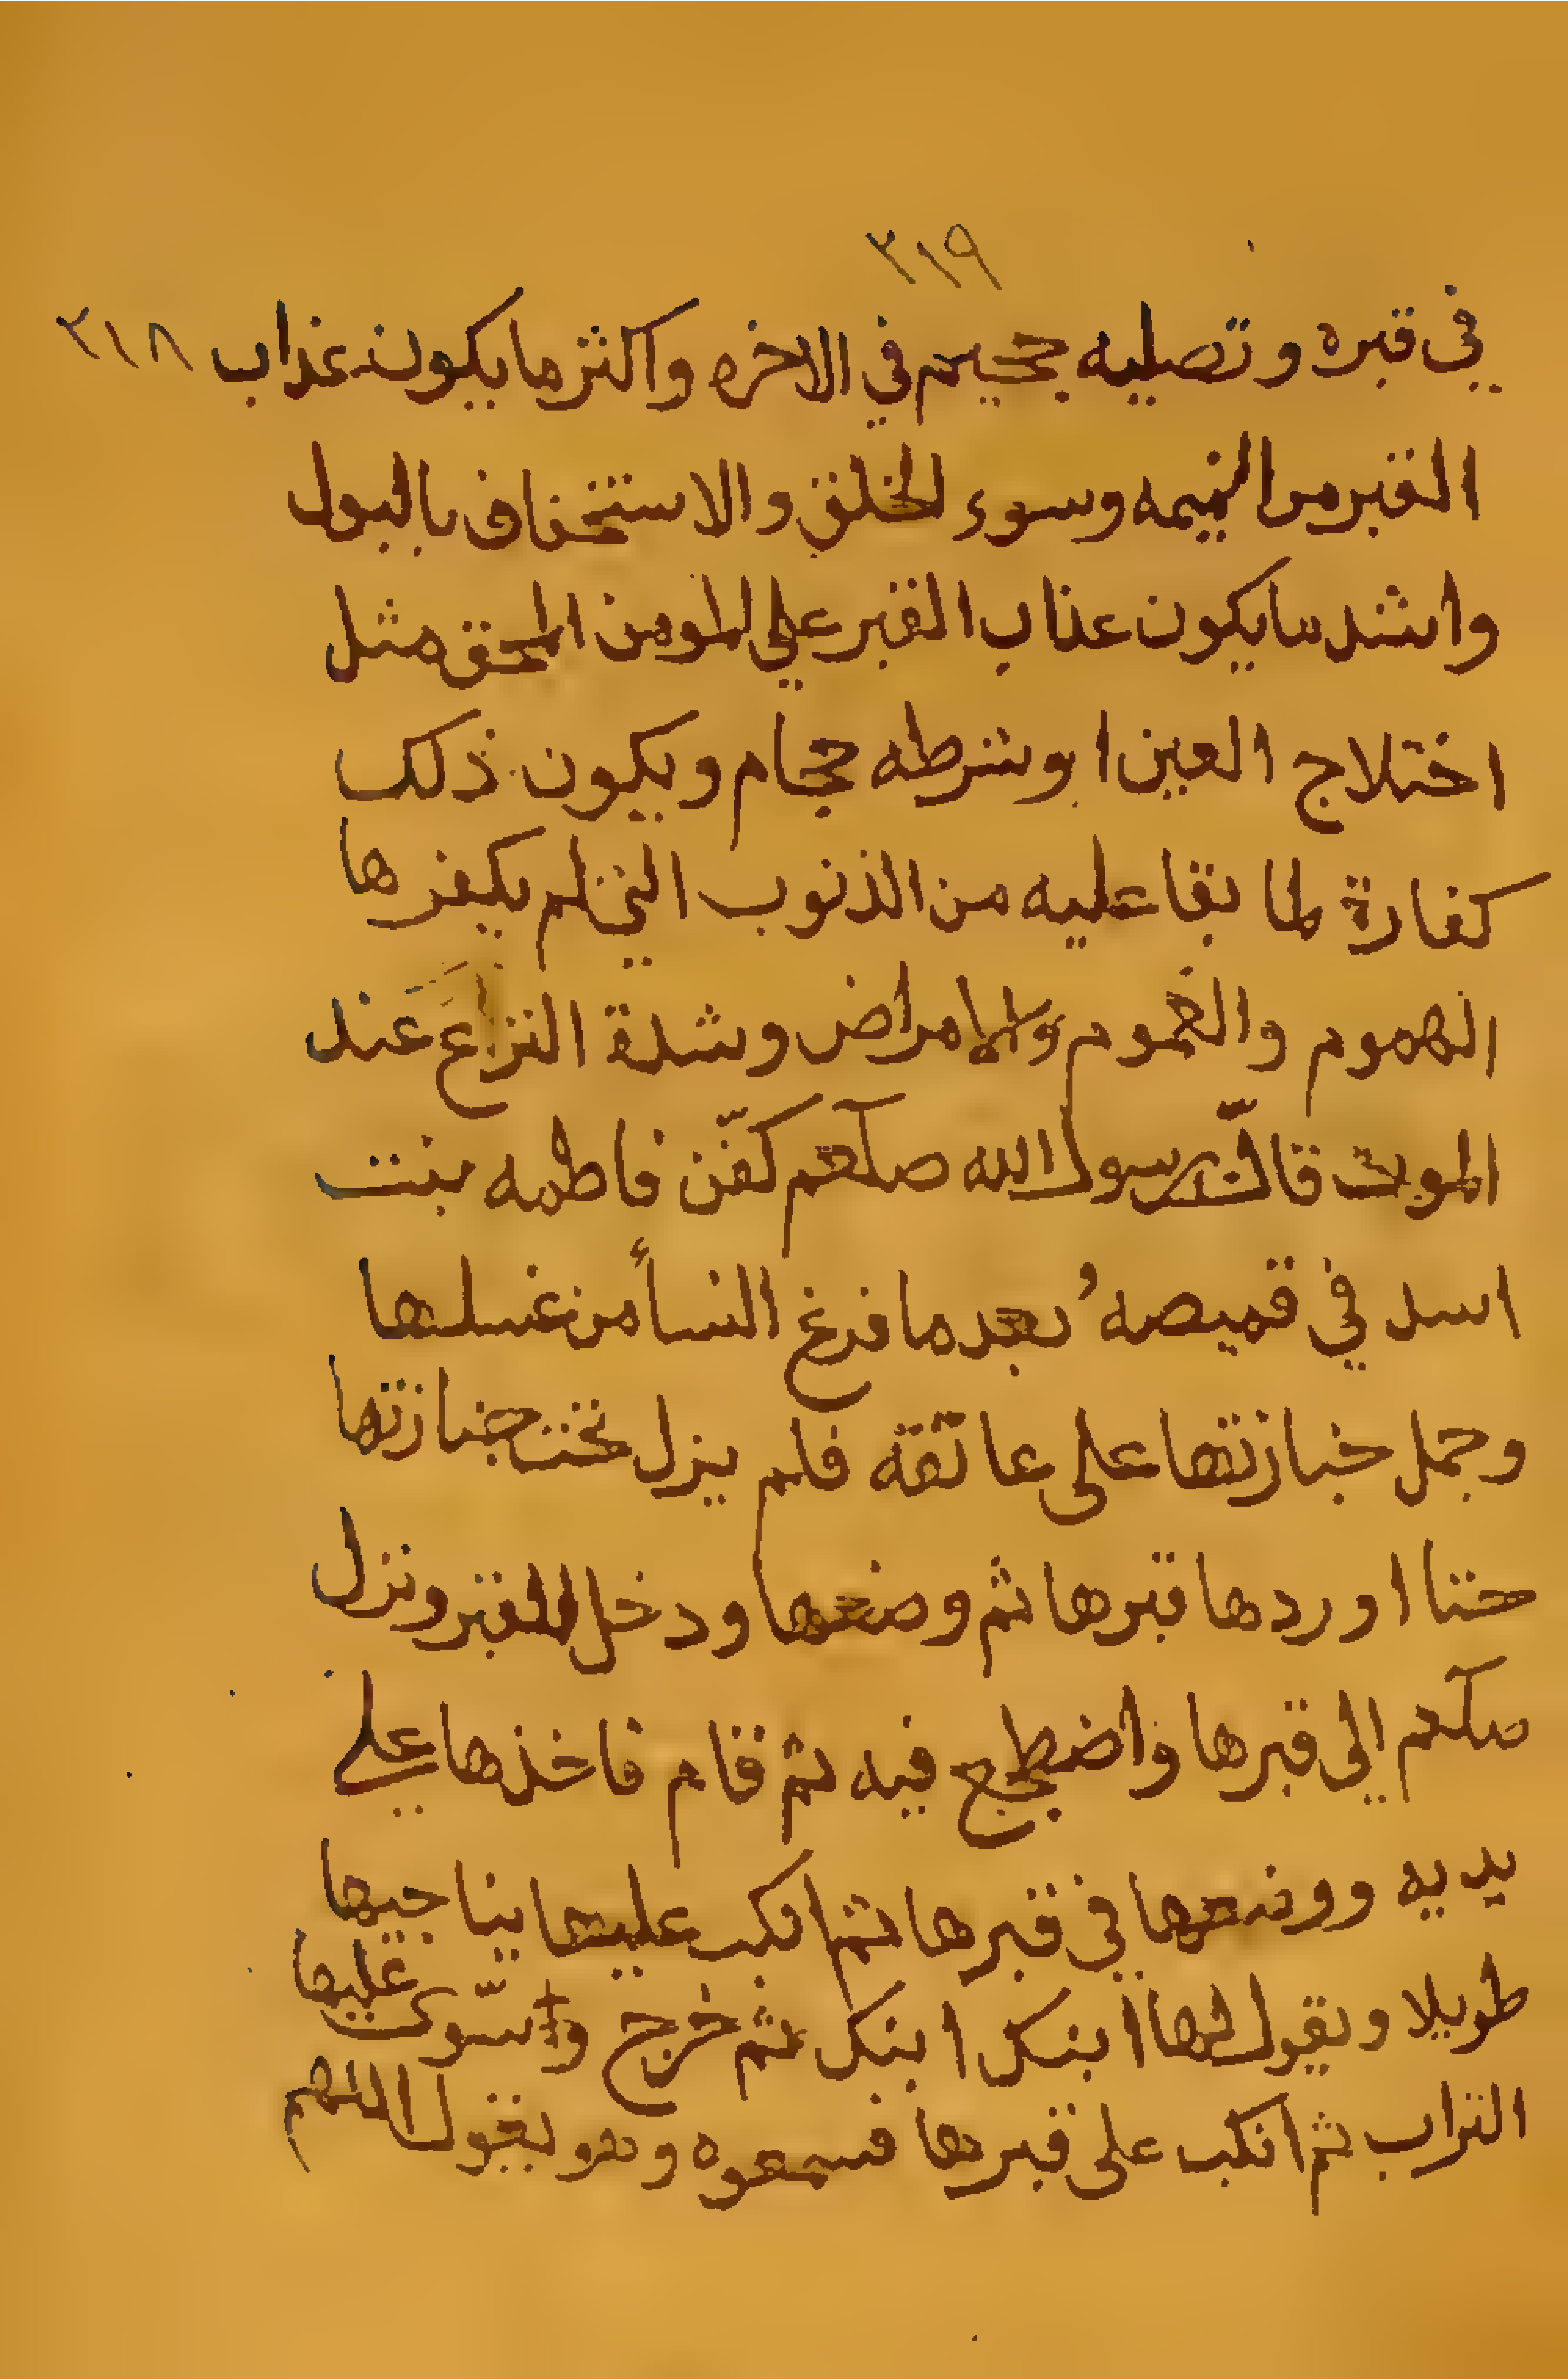 ٣١٩
في قبره وتصليه جحيم في الاخره واكثر ما يكون عذاب ٣١٨
القبر من النميمه وسوء الخلق والاستخفاف بالبول
واشد ما يكون عذاب القبر على المومن المحق مثل
اختلاج العين او شرطه حجام ويكون ذلك
كفارة لما بقا عليه من الذنوب التي لم يكفرها
الهموم والغموم والامراض وشدة النزاع عند
الموت قال رسول الله صلعم كفّن فاطمه بنت
اسد في قميصه بعد ما فرغ النسأ من غسلها
وحمل جنازتها على عاتقة فلم يزل تحت جنازتها
حتا اوردها قبرها ثم وضعها ودخل القبر ونزل
صلعم الى قبرها واضطجع فيه ثم قام فاخذها على
يديه ووضعها في قبرها ثم انكب عليها يناجيها
طويلا ويقول لها ابنك ابنك ثم خرج وسّوى عليها
التراب ثم انكب على قبرها فسمعوه وهو يقول اللهم